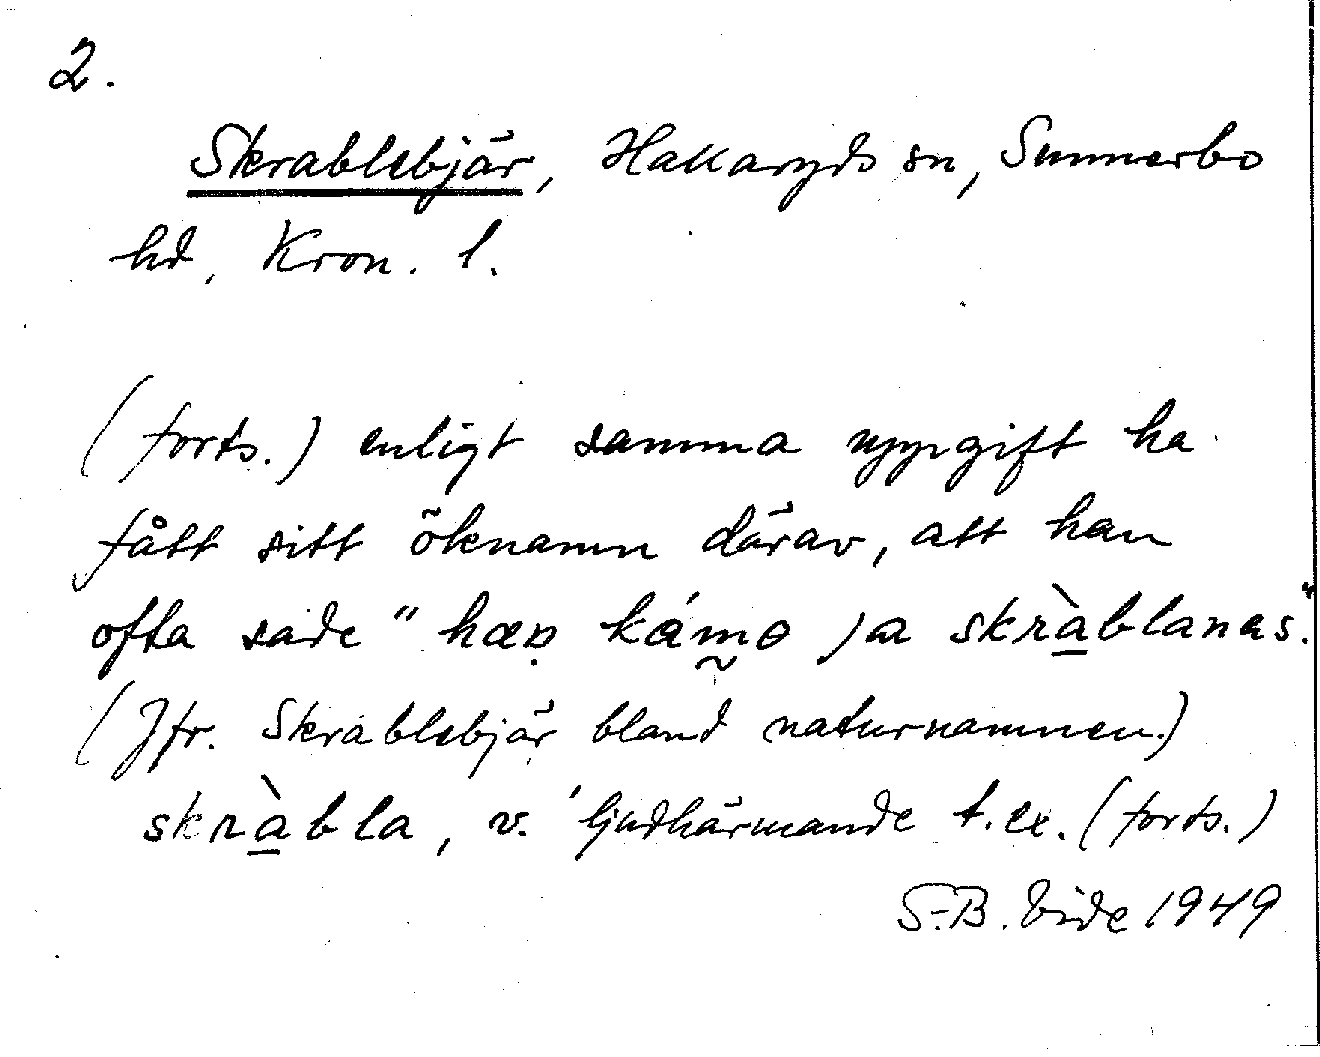 2.
Skrablebjär, Hallaryds sn, Sunnerbo
hd, Kron. l.
(forts.) enligt samma uppgift ha
fått sitt öknamn därav, att han
ofta sade "hæṇ kám̰ə ja skrà̱blanəs."
(Jfr. Skrablebjär bland naturnamnen.)
skrà̱bla, v. 'ljudhärmande t.ex. (forts.)
S.-B. Vide 1949